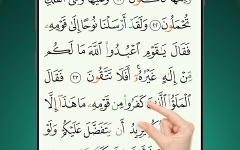 تُحْمَلُونَ ﴿٢٢﴾ وَلَقَدْ أَرْسَلْنَا نُوحًا إِلَىٰ قَوْمِهِ
فَقَالَ يَـٰقَوْمِ ٱعْبُدُوا۟ ٱللَّهَ مَا لَكُم
مِّنْ إِلَـٰهٍ غَيْرُهُۥٓ ۖ أَفَلَا تَتَّقُونَ ﴿٢٣﴾ فَقَالَ
ٱلْمَلَؤُا۟ ٱلَّذِينَ كَفَرُوا۟ مِن قَوْمِهِۦ مَا هَـٰذَآ إِلَّا
يُرِيدُ أَن يَتَفَضَّلَ عَلَيْكُمْ وَلَوْ